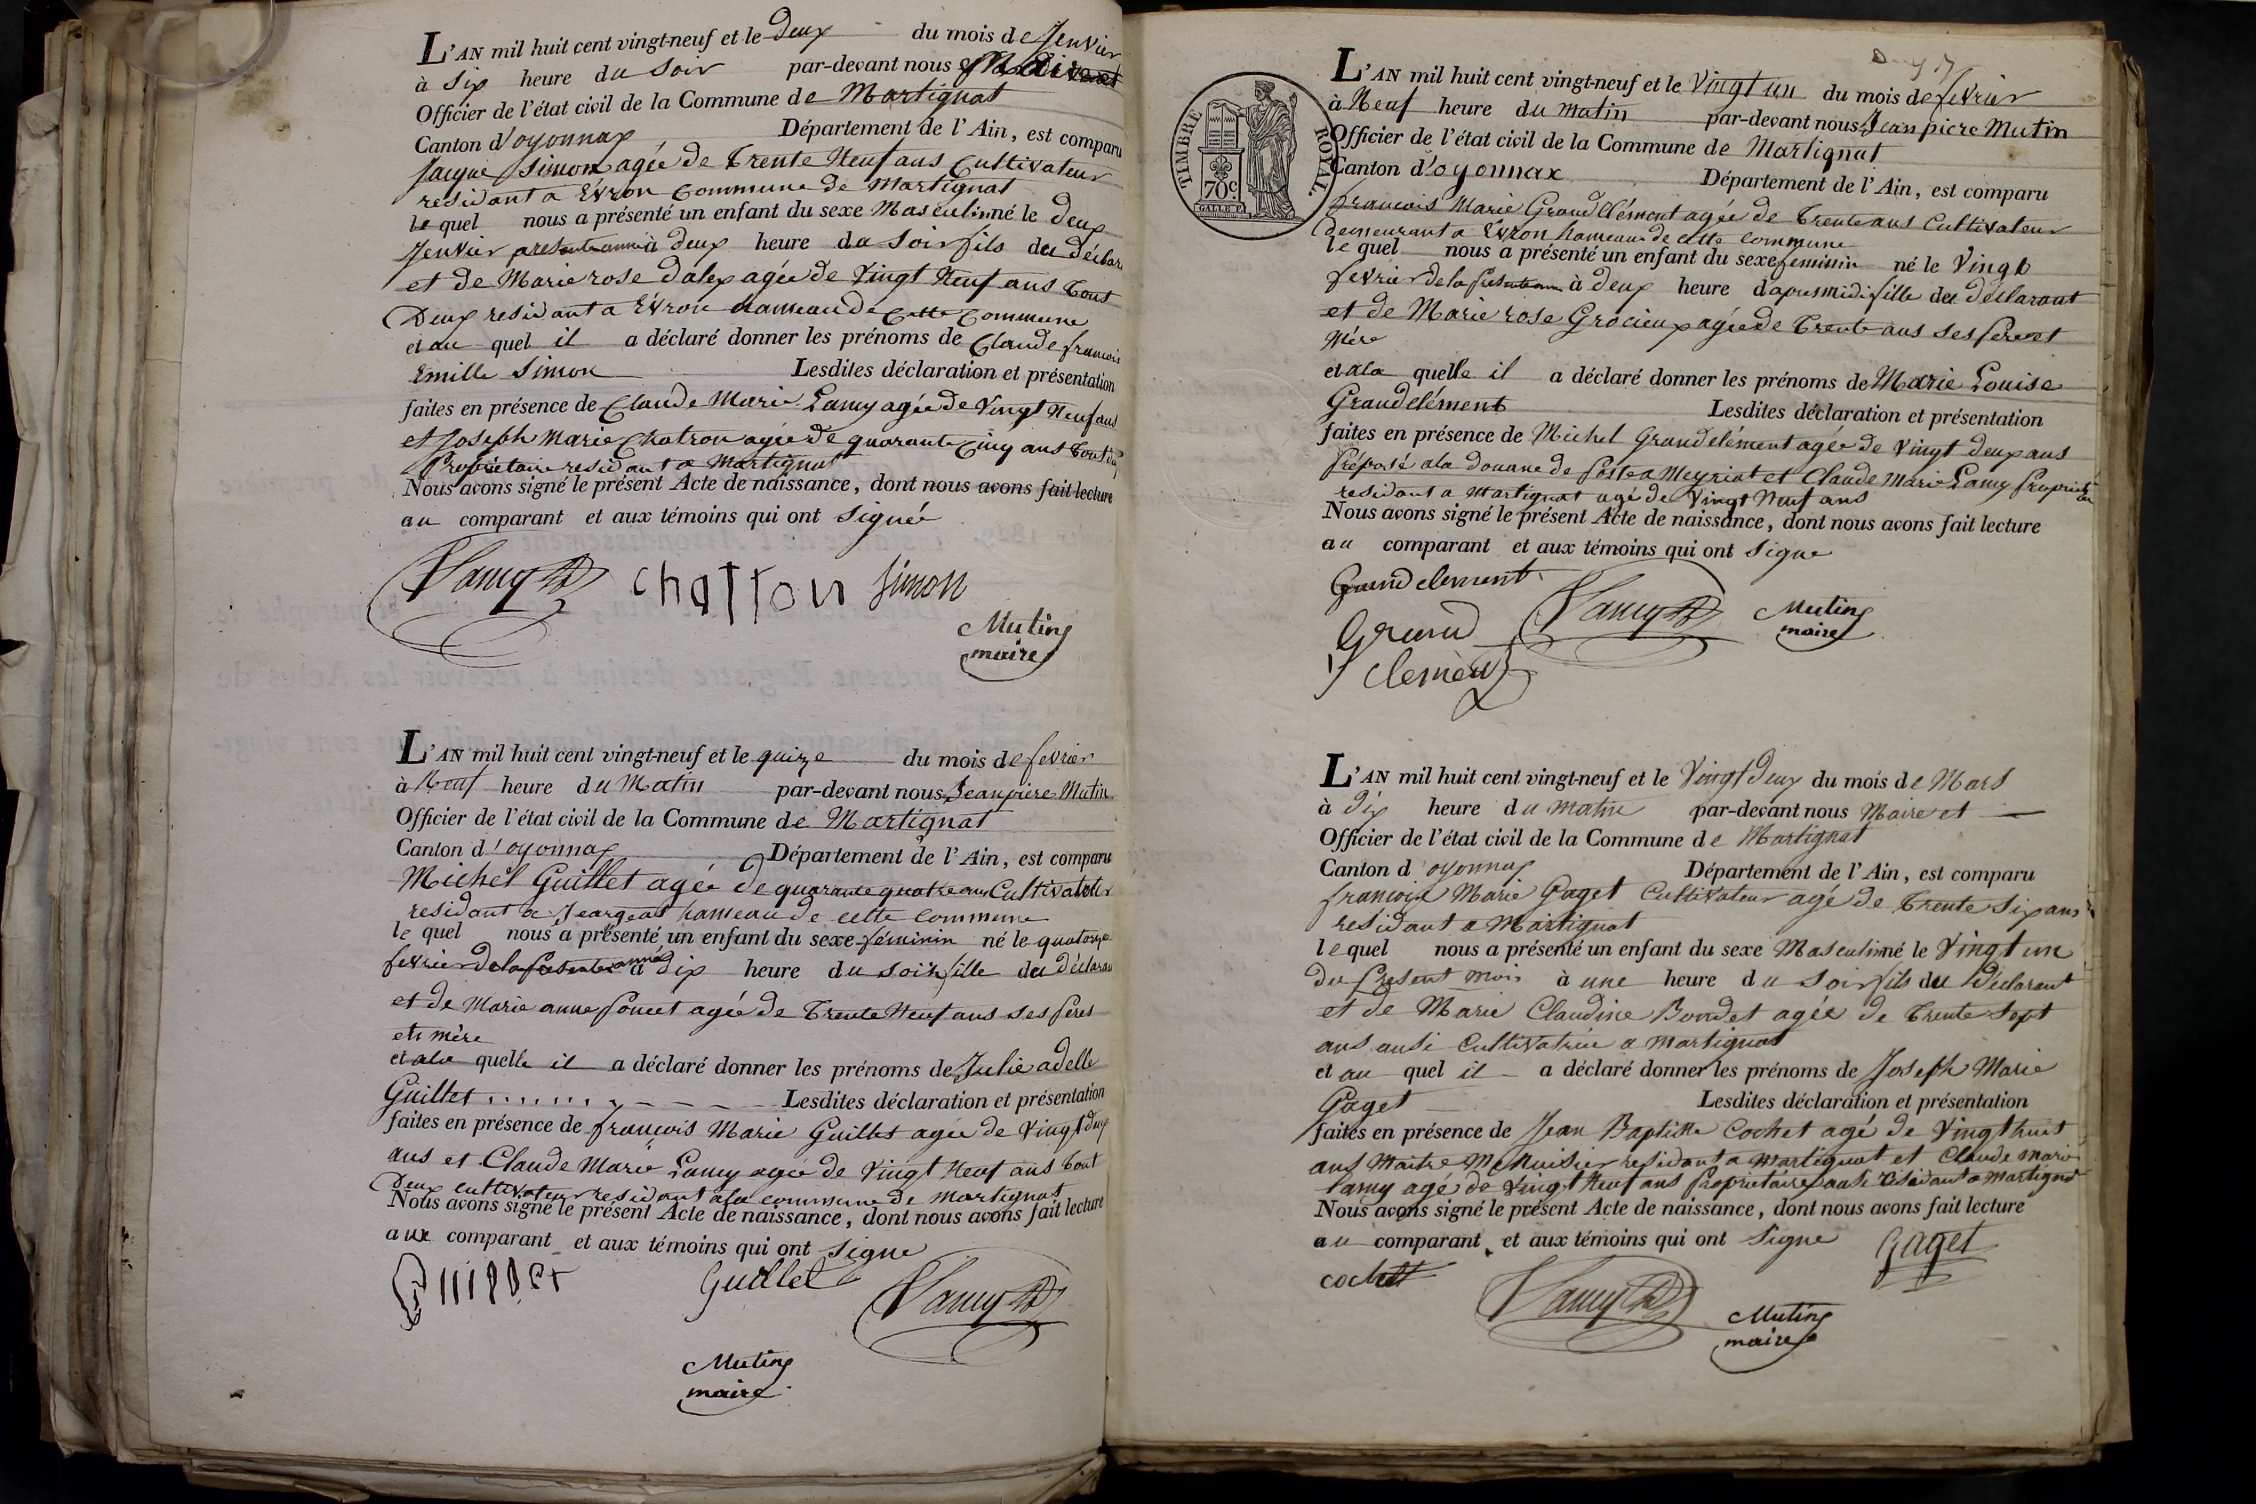 L'AN mil huit cent vingt-neuf et le deux du mois de Jenvier
à Six heure du Soir par-devant nous Maire et
Officier de l'état civil de la Commune de Martignat
Canton d'oyonnax Département de l'Ain, est comparu
Jacque Simon agée de Trente Neuf ans Cultivateur
residant a Evron Commune de Martignat
le quel nous a présenté un enfant du sexe Masculin né le deux
Jenvier presente année à deux heure du Soir fils du déclar
et de Marie rose dalex agée de Vingt Neuf ans Tout
Deux residant a Evron hameau de Cette Commune
et au quel il a déclaré donner les prénoms de Claude francois
Emille Simon Lesdites déclaration et présentation
faites en présence de Claude Marie Lamy agée de Vingt Neuf ans
et Joseph Marie Chatron agée de quarante Cinq ans Tout
Proprietaire residant a Martignat
Nous avons signé le présent Acte de naissance, dont nous avons fait lecture
au comparant et aux témoins qui ont Signée
Lamy chatron Simon
Mutin
maire
L'AN mil huit cent vingt-neuf et le quinze du mois de fevrier
à Neuf heure du Matin par-devant nous Jean piere Mutin
Officier de l'état civil de la Commune de Martignat
Canton d'oyonnax Département de l'Ain, est comparu
Michel Guillet agée de quarante quatre ans Cultivateur
residant a Jeargeat hameau de cette Commune
le quel nous a présenté un enfant du sexe féminin né le quatorze
fevrier de la presente année à dix heure du soir fille du déclarau
et de Marie anne poncet agée de Trente Neuf ans ses peres
et mère
et ala quelle il a déclaré donner les prénoms de Julie adelle
Guillet Lesdites déclaration et présentation
faites en présence de francois Marie Guillet agée de Vingt deux
ans et Claude Marie Lamy agée de Vingt Neuf ans Tout
Deux cultivateur residant a la commune de Martignat
Nous avons signé le présent Acte de naissance, dont nous avons fait lecture
aux comparant et aux témoins qui ont Signe
Guillet Guillet Lamy
Mutin
maire
TIMBRE ROYAL.
70c
L'AN mil huit cent vingt-neuf et le Vingt un du mois de fevrier
à Neuf heure du Matin par-devant nous Jean piere Mutin
Officier de l'état civil de la Commune de Martignat
Canton d'oyonnax Département de l'Ain, est comparu
francois Marie Grand Clément agée de Trente ans Cultivateur
demeurant a Evron hameau de cette commune
le quel nous a présenté un enfant du sexe feminin né le Vingt
fevrier de la presente année à deux heure d'apres midi fille du déclarant
et de Marie rose Grocieux agée de Trente ans ses pere et
Mére
et ala quelle il a déclaré donner les prénoms de Marie Louise
Grandclément Lesdites déclaration et présentation
faites en présence de Michel Grandclément agée de Vingt deux ans
préposé ala douane de poste a Meyriat et Claude Marie Lamy proprietaire
residant a Martignat agé de Vingt Neuf ans
Nous avons signé le présent Acte de naissance, dont nous avons fait lecture
au comparant et aux témoins qui ont Signe
Grandclement
Grand Lamy Mutin
clement maire
L'AN mil huit cent vingt-neuf et le Vingt deux du mois de Mars
à dix heure du matin par-devant nous Maire et
Officier de l'état civil de la Commune de Martignat
Canton d'oyonnax Département de l'Ain, est comparu
francois Marie Gaget Cultivateur agé de Trente Six ans
residant a Martignat
le quel nous a présenté un enfant du sexe Masculin né le Vingt un
du present mois à une heure du Soir fils du Déclarant
et de Marie Claudine Bondet agée de Trente Sept
ans ausi Cultivatrice a Martignat
et au quel il a déclaré donner les prénoms de Joseph Marie
Gaget Lesdites déclaration et présentation
faites en présence de Jean Baptiste Cochet agé de Vingt huit
ans Maitre Menuisier residant a Martignat et Claude marie
Lamy agé de Vingt Neuf ans Proprietaire ausi residant a Martignat
Nous avons signé le présent Acte de naissance, dont nous avons fait lecture
au comparant et aux témoins qui ont Signe Gaget
cochet Lamy Mutin
maire